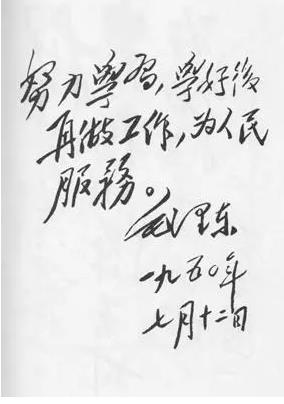 努力學習，學好後
再做工作，为人民
服務。
毛泽东
一九五〇年
七月十二日